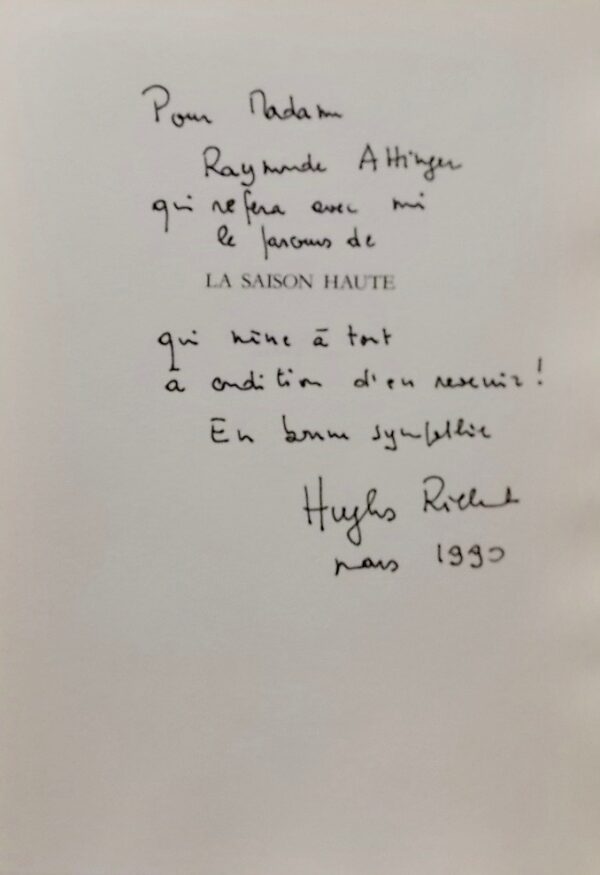 Pour Madame
Raymonde Attinger
qui refera avec moi
le parcours de
LA SAISON HAUTE
qui mène à tout
à condition d'en revenir !
En bonne sympathie
Hughes Richard
mars 1990